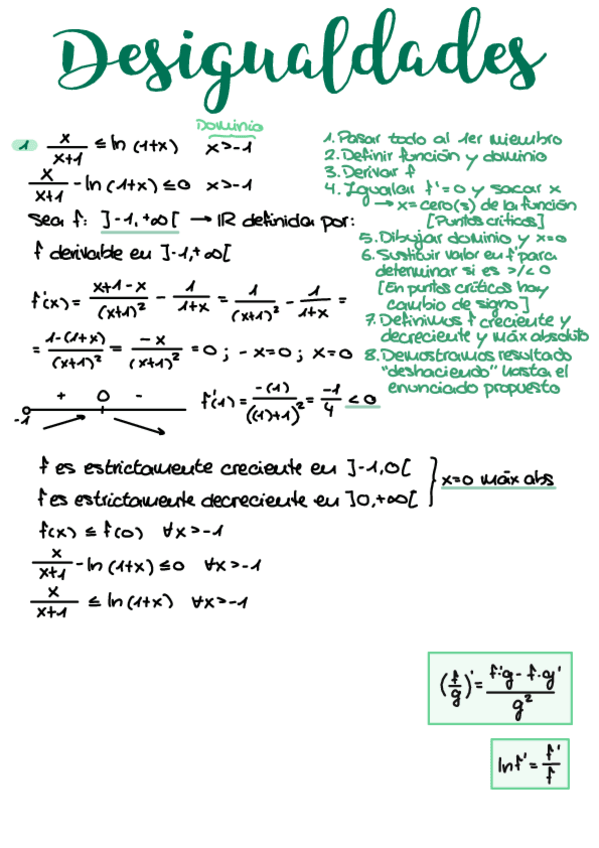 Desigualdades
Dominio
1 x/(x+1) ≤ ln (1+x) x>-1
x/(x+1) - ln (1+x) ≤ 0 x>-1
Sea f: ]-1,+∞[ → IR definida por:
f derivable en ]-1,+∞[
f'(x) = (x+1-x)/(x+1)² - 1/(1+x) = 1/(x+1)² - 1/(1+x) =
= (1-(1+x))/(x+1)² = -x/(x+1)² = 0 ; -x=0 ; x=0
+ 0 -
-1
f'(1) = -(1)/((1)+1)² = -1/4 < 0
1. Pasar todo al 1er miembro
2. Definir función y dominio
3. Derivar f
4. Igualar f'=0 y sacar x
→ x = cero(s) de la función
[Puntos críticos]
5. Dibujar dominio y x=0
6. Sustituir valor en f' para
determinar si es >/< 0
[En puntos críticos hay
cambio de signo]
7. Definimos f creciente y
decreciente y máx absoluto
8. Demostramos resultado
"deshaciendo" hasta el
enunciado propuesto
f es estrictamente creciente en ]-1,0[
f es estrictamente decreciente en ]0,+∞[
x=0 máx abs
f(x) ≤ f(0) ∀x>-1
x/(x+1) - ln (1+x) ≤ 0 ∀x>-1
x/(x+1) ≤ ln (1+x) ∀x>-1
(f/g)' = (f'·g - f·g')/g²
ln f' = f'/f